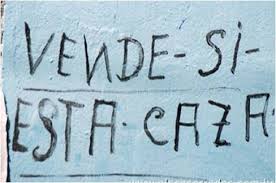 VENDE-SI-
ESTA-CAZA-